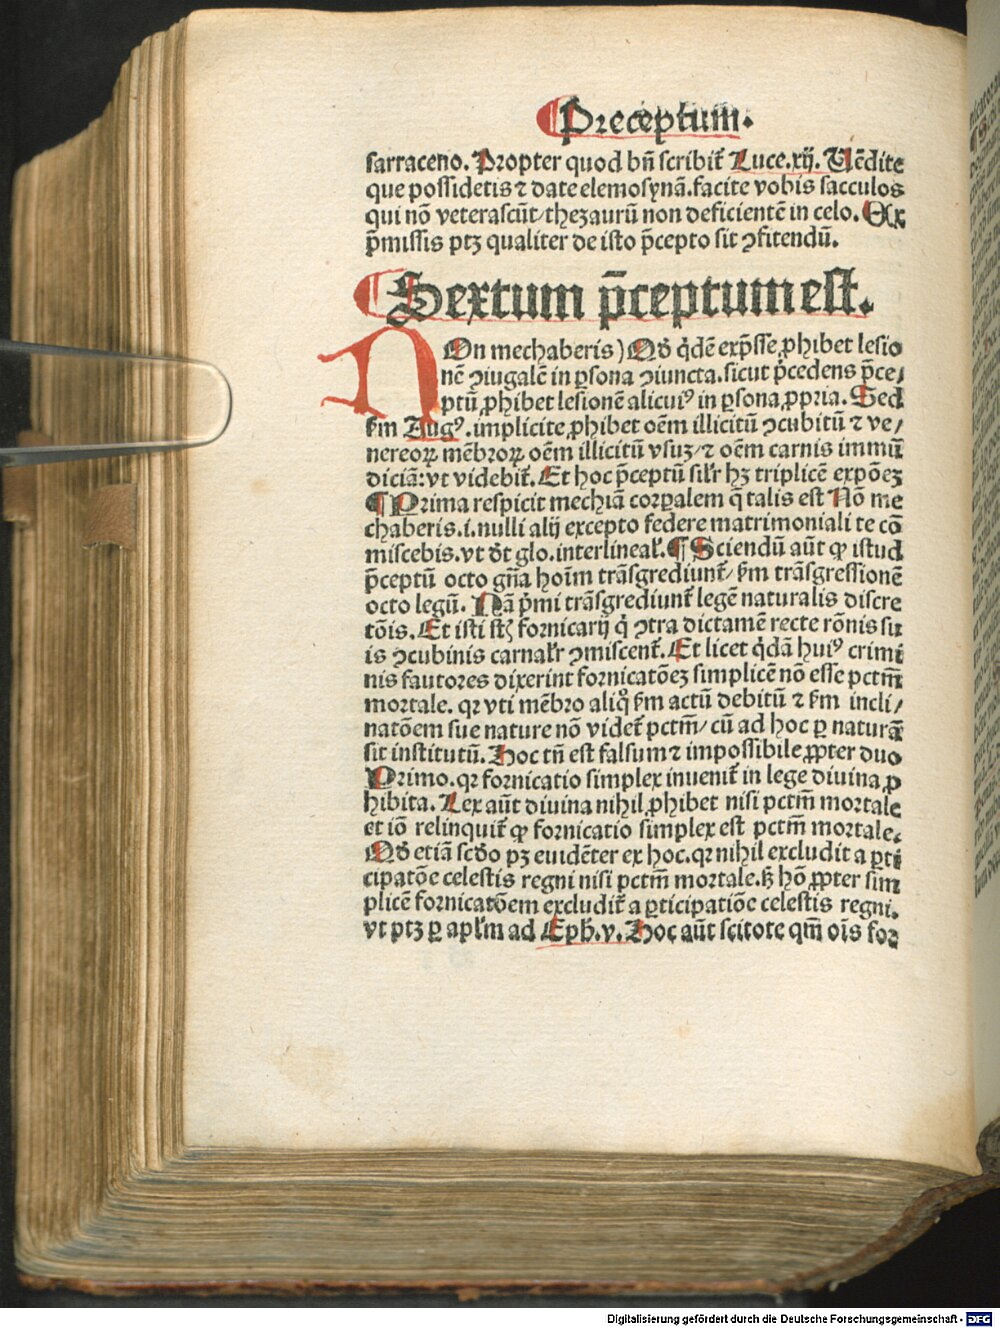 ¶Preceptum.
sarraceno. Propter quod bn̄ scribit̄ Luce.xij. Uēdite
que possidetis ⁊ date elemosynā. facite vobis sacculos
qui nō veterascūt/ thezaurū non deficientē in celo. Ex
p̄missis ptꝫ qualiter de isto p̄cepto sit ꝯfitendū.
¶Sextum p̄ceptum est.
NOn mechaberis) Qd̄ q̇dē exp̄sse ꝓhibet lesio
nē ꝯiugalē in ꝑsona ꝯiuncta. sicut p̄cedens p̄ce/
ptū ꝓhibet lesionē alicuiꝰ in ꝑsona ꝓpria. Sed
ẜm Augꝰ. implicite ꝓhibet oēm illicitū ꝯcubitū ⁊ ve/
nereoꝝ mēbroꝝ oēm illicitū vsuꝫ/ ⁊ oēm carnis immū
diciā: vt videbit̄. Et hoc p̄ceptū sil'r hꝫ triplicē expōeꝫ
¶Prima respicit mechiā corꝑalem q̄ talis est Nō me
chaberis .i. nulli alij excepto federe matrimoniali te cō
miscebis. vt dt̄ glo. interlinear̄. ¶Sciendū aūt ꝙ istud
p̄ceptū octo gn̄a hoīm trāsgrediunt̄/ ẜm trāsgressionē
octo legū. Nā p̄mi trāsgrediunt̄ legē naturalis discre
tōis. Et isti st̄ fornicarij q̇ ꝯtra dictamē recte rōnis su
is ꝯcubinis carnal'r ꝯmiscent̄. Et licet q̇dā huiꝰ crimi
nis fautores dixerint fornicatōeꝫ simplicē nō esse pctm̄
mortale. qꝛ vti mēbro aliq̊ ẜm actū debitū ⁊ ẜm incli/
natōem sue nature nō videt̄ pctm̄/ cū ad hoc ꝑ naturā
sit institutū. Hoc tn̄ est falsum ⁊ impossibile ꝓpter duo
Primo. qꝛ fornicatio simplex inuenit̄ in lege diuina ꝓ
hibita. Lex aūt diuina nihil ꝓhibet nisi pctm̄ mortale
et iō relinquit̄ ꝙ fornicatio simplex est pctm̄ mortale.
Qd̄ etiā scd̄o pꝫ euidēter ex hoc. qꝛ nihil excludit a ꝑti
cipatōe celestis regni nisi pctm̄ mortale. ẜꝫ hō ꝓpter sim
plicē fornicatōem excludit̄ a ꝑticipatiōe celestis regni.
vt ptꝫ ꝑ apl'm ad Eph̄.v. Hoc aūt scitote qm̄ oīs for
Digitalisierung gefördert durch die Deutsche Forschungsgemeinschaft - DFG